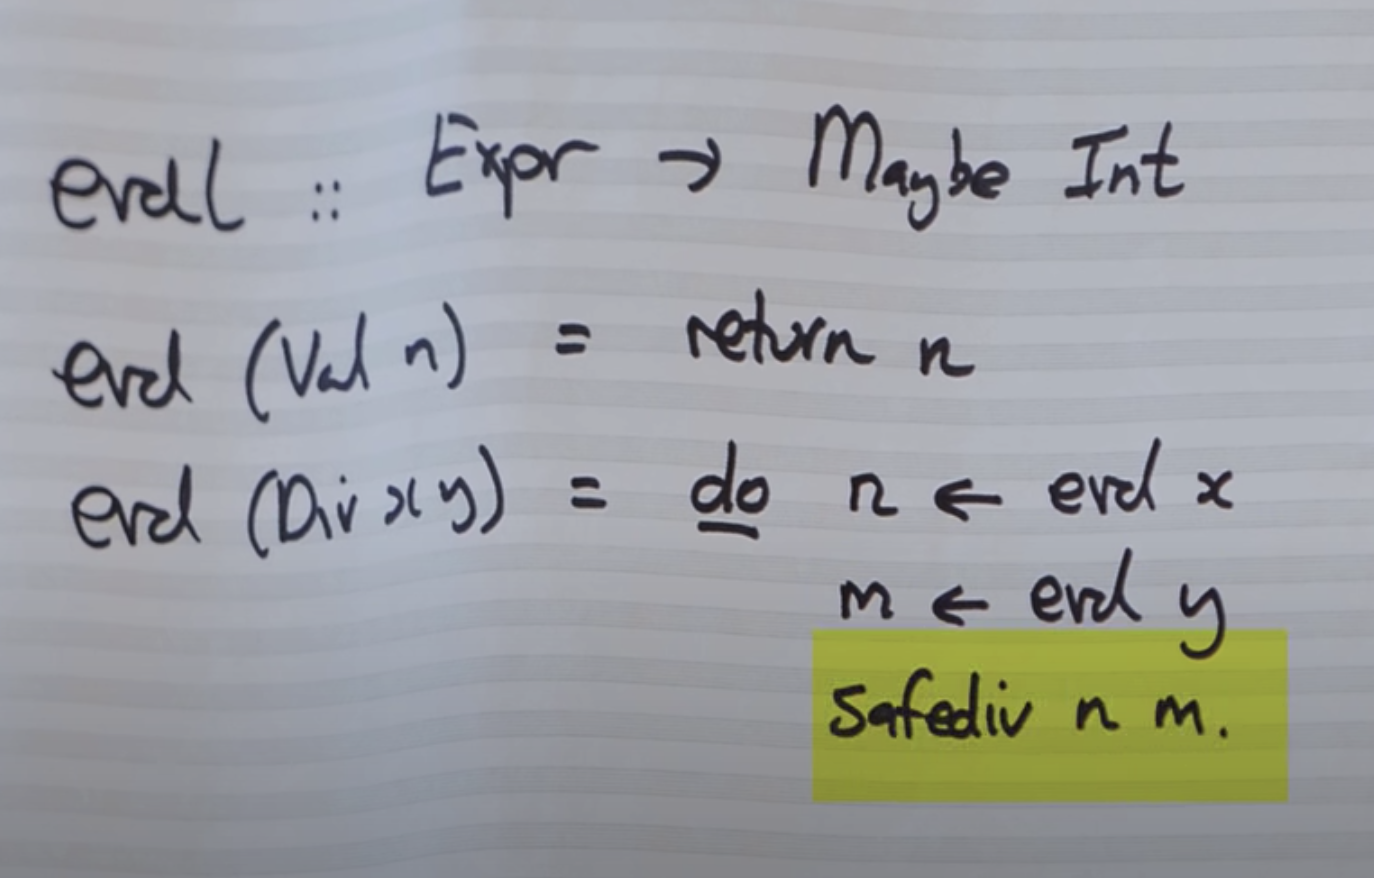 eval :: Expr → Maybe Int
eval (Val n) = return n
eval (Div x y) = do n ← eval x
m ← eval y
safediv n m.